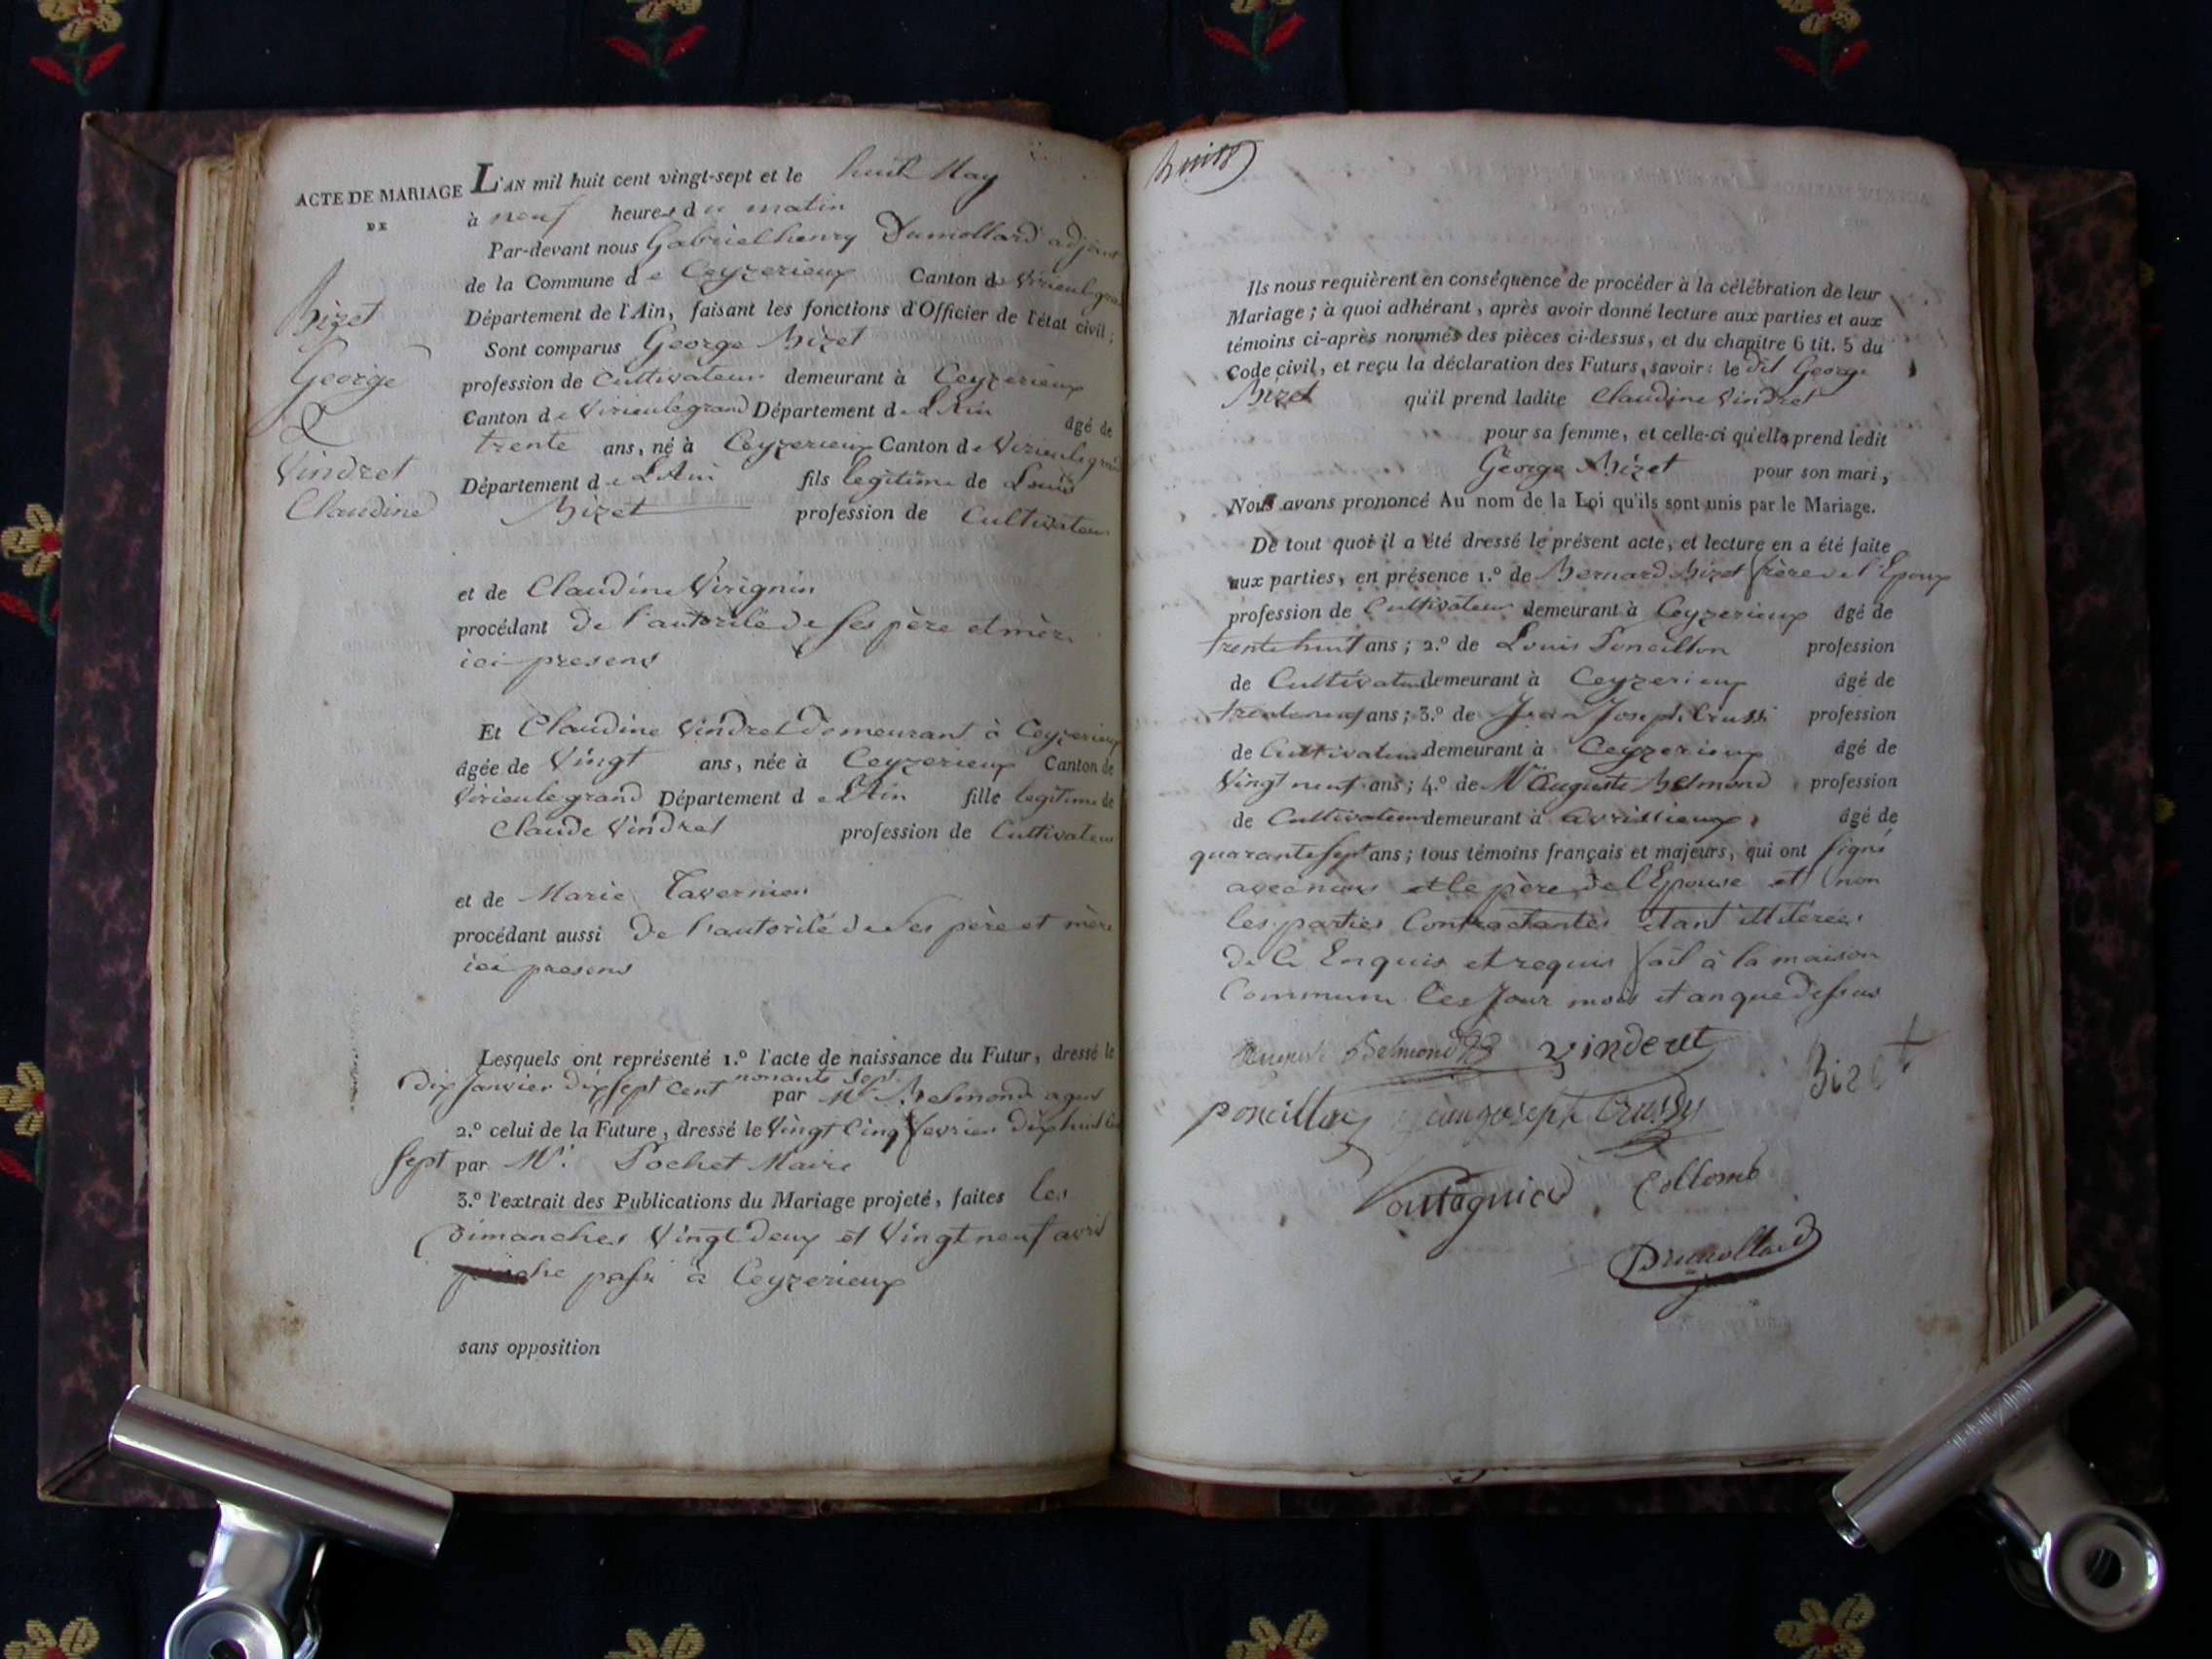 ACTE DE MARIAGE
DE
Bizet
George
&
Vindret
Claudine
L'AN mil huit cent vingt-sept et le huit May
à neuf heures du matin
Par-devant nous Gabriel henry Dumollard adjoint
de la Commune de Ceyzerieux Canton de Virieulegrand
Département de l'Ain, faisant les fonctions d'Officier de l'état civil;
Sont comparus George Bizet
profession de Cultivateur demeurant à Ceyzerieux
Canton de Virieulegrand Département de L'Ain âgé de
trente ans, né à Ceyzerieux Canton de Virieulegrand
Département de L'Ain fils legitime de Louis
Bizet profession de Cultivateur
et de Claudine Virignin
procédant de l'autorité de ses père et mère
ici presens
Et Claudine Vindret demeurant à Ceyzerieux
âgée de Vingt ans, née à Ceyzerieux Canton de
Virieulegrand Département de L'Ain fille legitime de
Claude Vindret profession de Cultivateur
et de Marie Tavernier
procédant aussi de l'autorité de ses père et mère
ici presens
Lesquels ont représenté 1.º l'acte de naissance du Futur, dressé le
dix Janvier dix sept cent nonante sept par Mr. Belmond agent
2.º celui de la Future, dressé le Vingt Cinq fevrier dix huit Cent
sept par Mr. Pochet Maire
3.º l'extrait des Publications du Mariage projeté, faites les
Dimanches Vingt Deux et Vingt neuf avril
proche passé à Ceyzerieux
sans opposition
huit
Ils nous requièrent en conséquence de procéder à la célébration de leur
Mariage; à quoi adhérant, après avoir donné lecture aux parties et aux
témoins ci-après nommés des pièces ci-dessus, et du chapitre 6 tit. 5 du
Code civil, et reçu la déclaration des Futurs, savoir: le dit George
Bizet qu'il prend ladite Claudine Vindret
pour sa femme, et celle-ci qu'elle prend ledit
George Bizet pour son mari,
Nous avons prononcé Au nom de la Loi qu'ils sont unis par le Mariage.
De tout quoi il a été dressé le présent acte, et lecture en a été faite
aux parties, en présence 1.º de Bernard Bizet frère de l'Epoux
profession de Cultivateur demeurant à Ceyzerieux âgé de
trente huit ans; 2.º de Louis Poncillon profession
de Cultivateur demeurant à Ceyzerieux âgé de
trente neuf ans; 3.º de Jean Joseph Crussi profession
de Cultivateur demeurant à Ceyzerieux âgé de
Vingt neuf ans; 4.º de Mr Auguste Belmond profession
de Cultivateur demeurant à avrissieux âgé de
quarante sept ans; tous témoins français et majeurs, qui ont signé
avec nous et le père de l'Epouse et non
les parties Contractantes étant illitérées
de Ce Enquis et requis fait à la maison
Commune les Jour mois et an que dessus
Auguste Belmond Vinderet
Bizet
poncillon jean joseph Crussy
Collomb
Dumollard